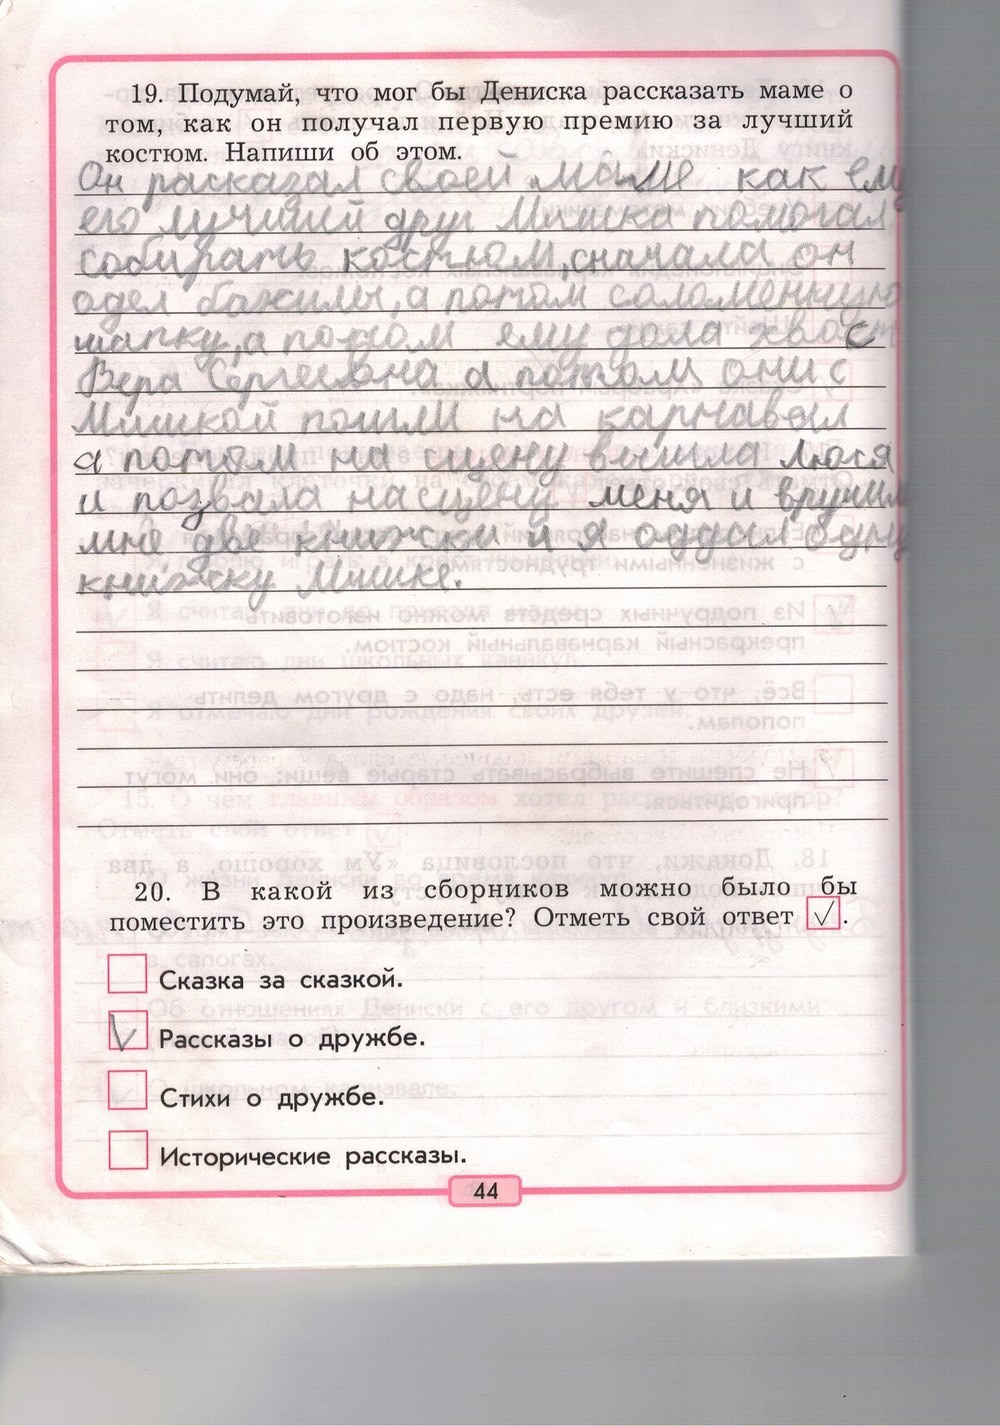 19. Подумай, что мог бы Дениска рассказать маме о
том, как он получал первую премию за лучший
костюм. Напиши об этом.
Он расказал своей маме как ему
его лучший друг Мишка помогал
собирать костюм, сначала он
одел бахилы, а потом соломенную
шапку, а потом ему дала хвост
Вера Сергеевна а потом они с
Мишкой пошли на карнавал
а потом на сцену вышла люся
и позвала на сцену меня и вручили
мне две книжки и я отдал одну
книжку Мишке.
20. В какой из сборников можно было бы
поместить это произведение? Отметь свой ответ ✓.
Сказка за сказкой.
V Рассказы о дружбе.
Стихи о дружбе.
Исторические рассказы.
44